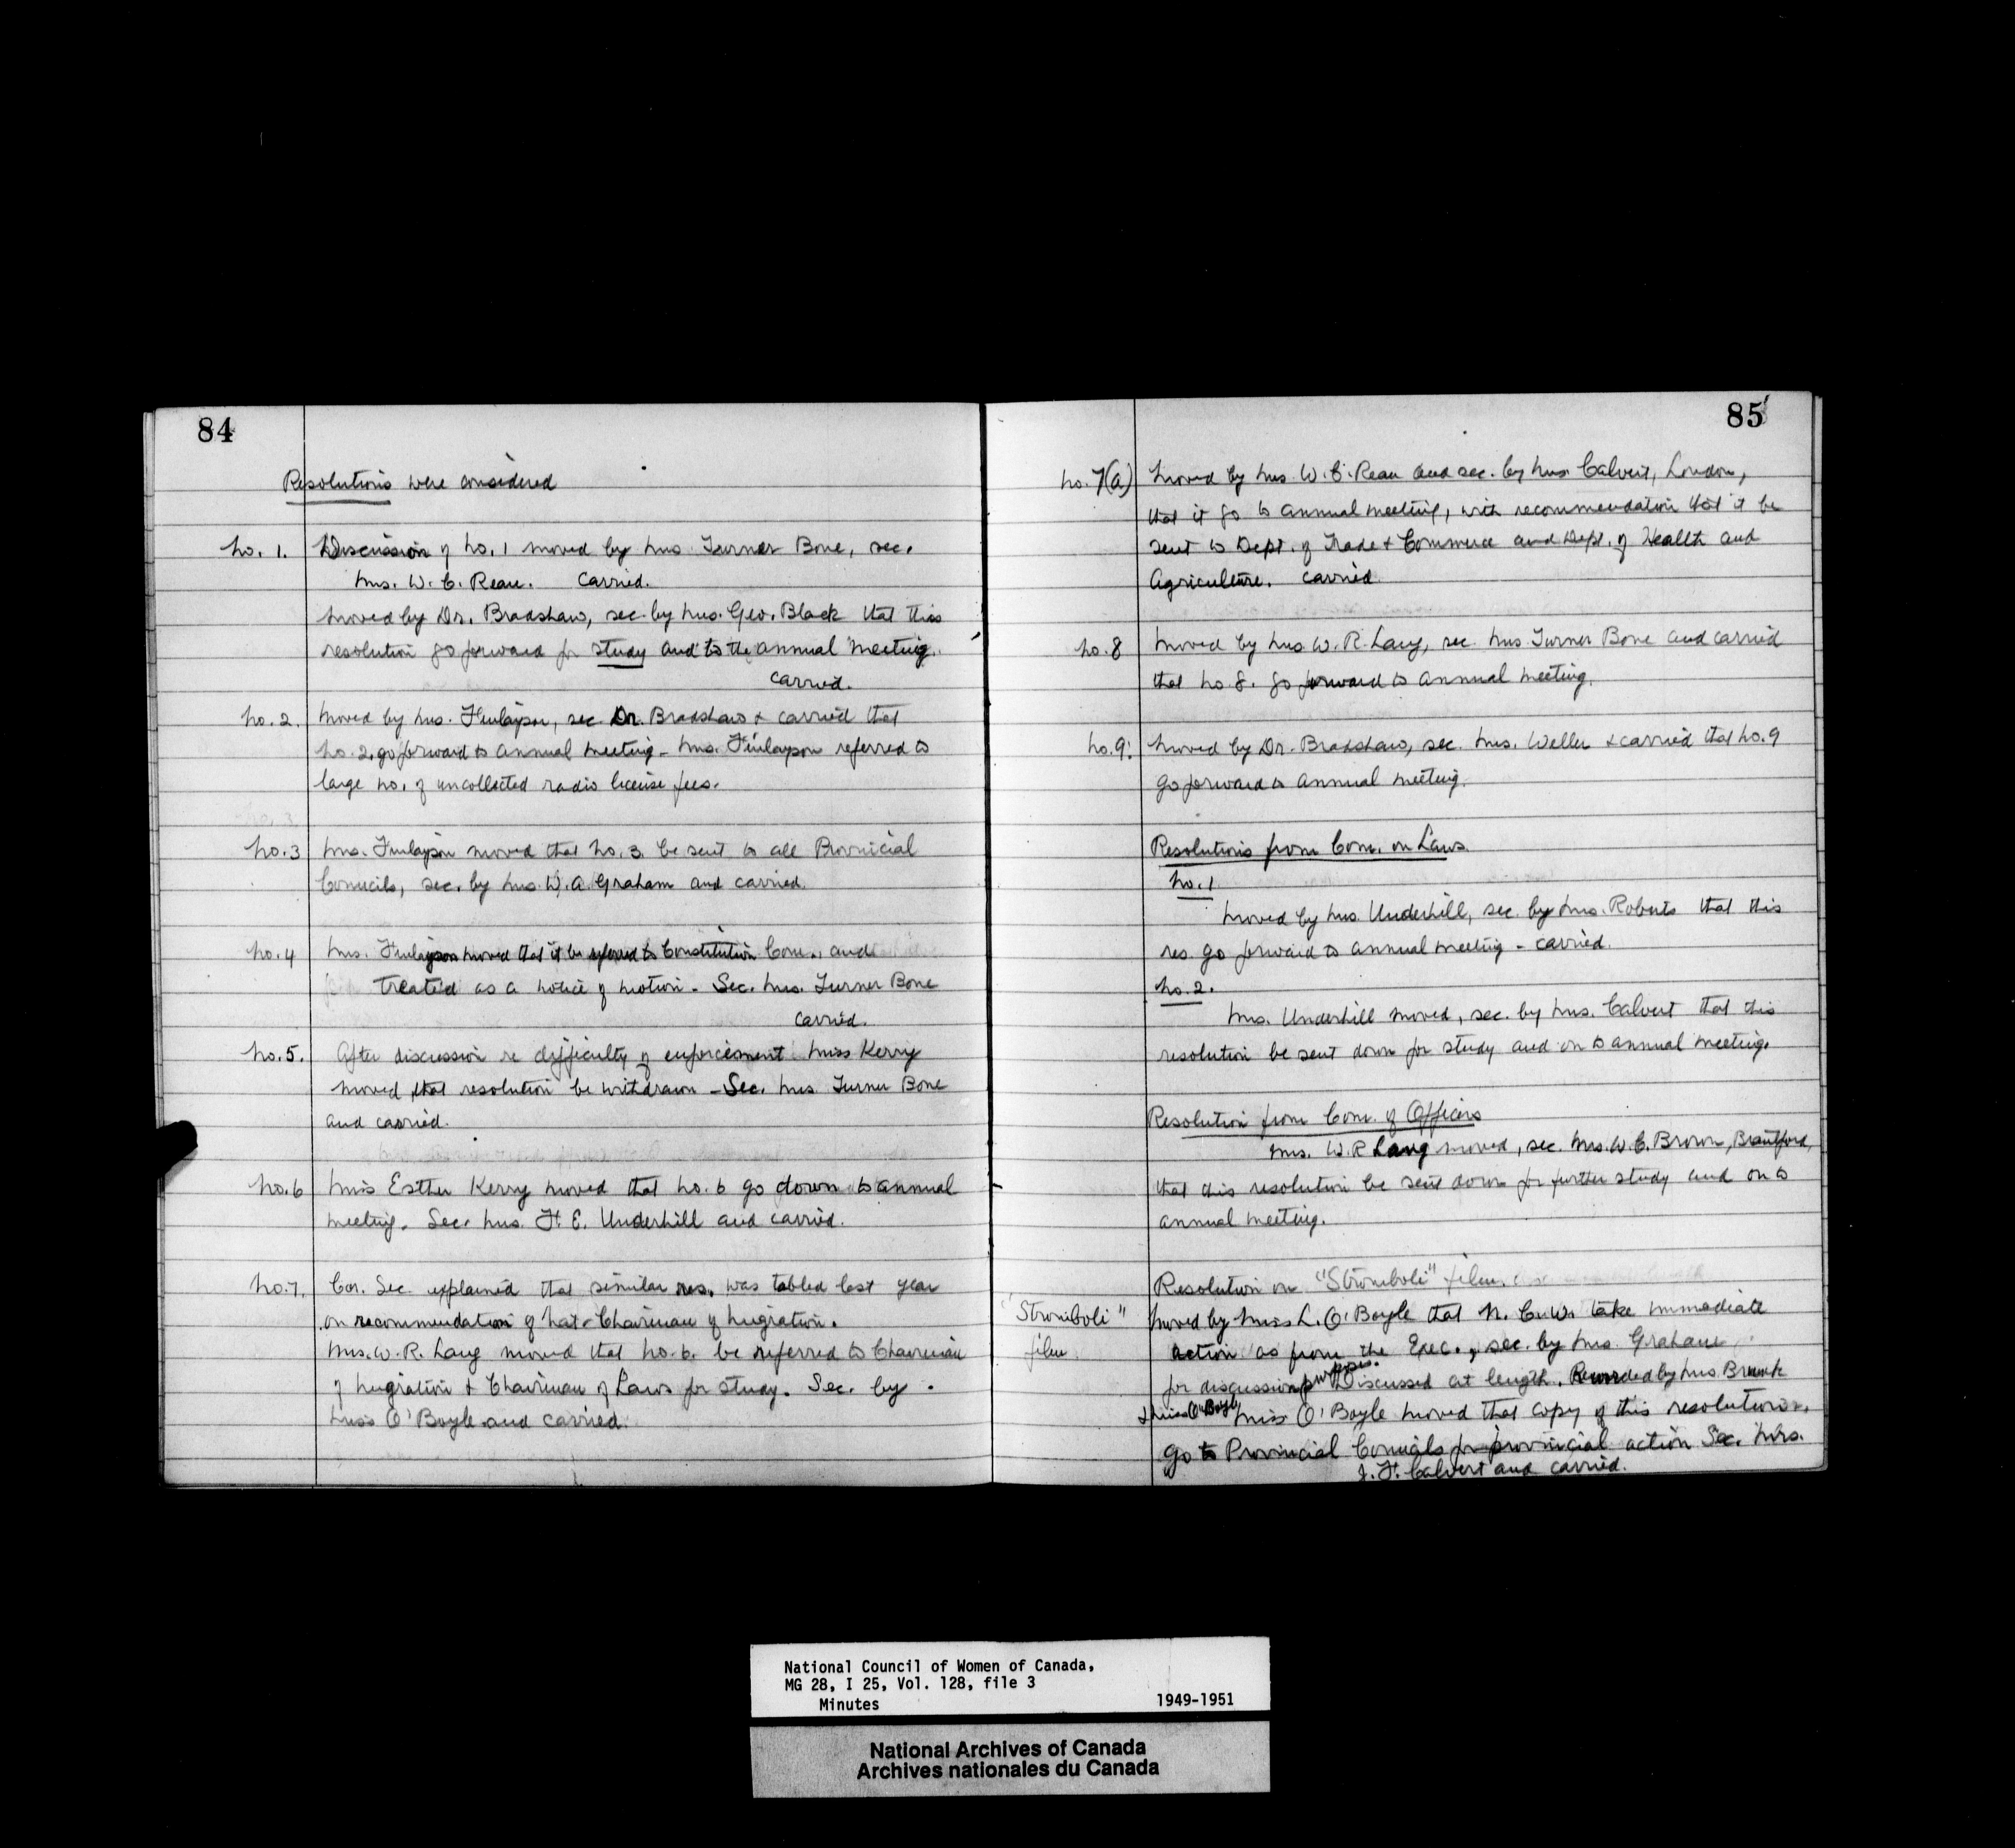 84
Resolutions were considered
No. 1. Discussion of No. 1 moved by Mrs. Turner Bone, sec.
Mrs. W. C. Rean. Carried.
Moved by Dr. Bradshaw, sec. by Mrs. Geo. Black that this
resolution go forward for study and to the annual meeting.
Carried.
No. 2. Moved by Mrs. Finlayson, sec. Dr. Bradshaw & carried that
No. 2. go forward to annual meeting - Mrs. Finlayson referred to
large no. of uncollected radio license fees.
No. 3 Mrs. Finlayson moved that No. 3. be sent to all Provincial
Councils, sec. by Mrs. W. A. Graham and carried.
No. 4 Mrs. Finlayson moved that it be referred to Constitution Com., and
treated as a notice of motion - Sec. Mrs. Turner Bone
Carried.
No. 5. After discussion re difficulty of enforcement Miss Kerry
moved that resolution be withdrawn - Sec. Mrs. Turner Bone
and carried.
No. 6 Miss Esther Kerry moved that No. 6 go down to annual
meeting. Sec. Mrs. F. E. Underhill and carried.
No. 7. Cor. Sec. explained that similar res. was tabled last year
on recommendation of Nat. Chairman of Migration.
Mrs. W. R. Lang moved that No. 6. be referred to Chairman
of Migration & Chairman of Laws for study. Sec. by
Miss O'Boyle and carried.
85
No. 7(a) Moved by Mrs. W. C. Rean and sec. by Mrs. Calvert, London,
that it go to annual meeting, with recommendation that it be
sent to Dept. of Trade & Commerce and Dept. of Health and
Agriculture. Carried.
No. 8 Moved by Mrs. W. R. Lang, sec. Mrs Turner Bone and carried
that No. 8. go forward to annual meeting.
No. 9. Moved by Dr. Bradshaw, sec. Mrs. Weller & carried that No. 9
go forward to annual meeting.
Resolutions from Com. on Laws
No. 1
Moved by Mrs. Underhill, sec. by Mrs. Roberts that this
res. go forward to annual meeting - carried.
No. 2.
Mrs. Underhill moved, sec. by Mrs. Calvert that this
resolution be sent down for study and on to annual meeting.
Resolution from Com. of Officers
Mrs. W. R Lang moved, sec. Mrs. W. C. Brown, Brantford,
that this resolution be sent down for further study and on to
annual meeting.
Resolution on "Stromboli" film.
"Stromboli" Moved by Miss L. O'Boyle that N. C. W. take immediate
film. action as from the Exec., sec. by Mrs. Graham
for discussion purposes. Discussed at length. by Mrs.
& Miss O'Boyle Miss O'Boyle moved that copy of this resolution
go to Provincial Councils for provincial action Sec. Mrs.
J. F. Calvert and carried.
National Council of Women of Canada,
MG 28, I 25, Vol. 128, file 3
Minutes 1949-1951
National Archives of Canada
Archives nationales du Canada